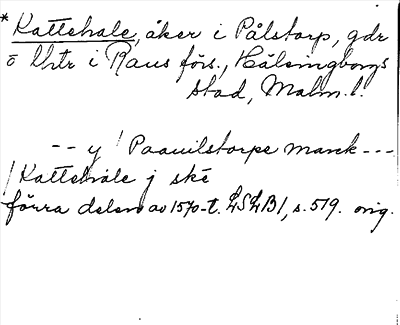 * Kattehale, åker i Pålstorp, gdr
ö Vrtr i Raus förs., Hälsingborgs
stad, Malm. l.
-- y / Paauilstorpe marck ---
/ Kattehale j ské
förra delen av 1570-t. LSLB1, s. 519. orig.